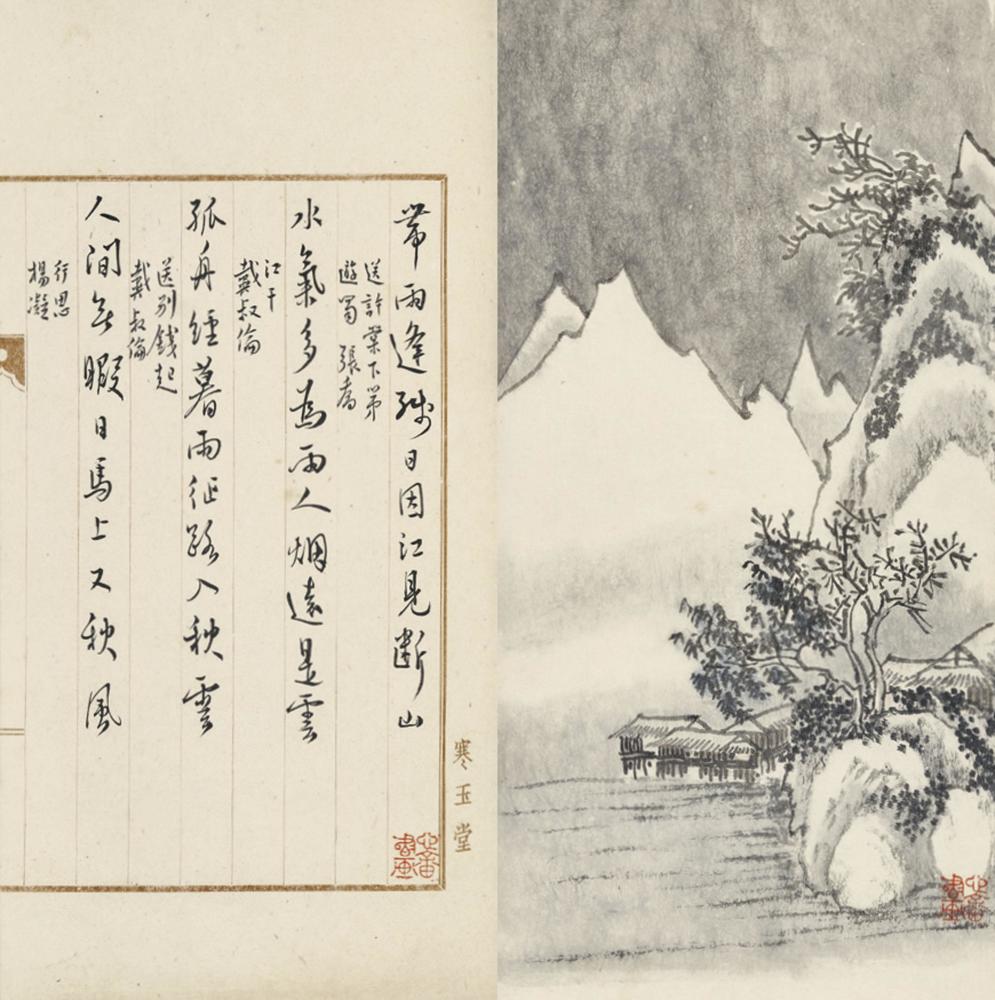 帶雨逢殘日因江見斷山
送許棠下第
遊蜀 張喬
水氣多為雨人烟遠是雲
江干
戴叔倫
孤舟經暮雨征路入秋雲
送別錢起
戴叔倫
人間無暇日馬上又秋風
行思
楊凝
寒玉堂
心畬書画
心畬書画